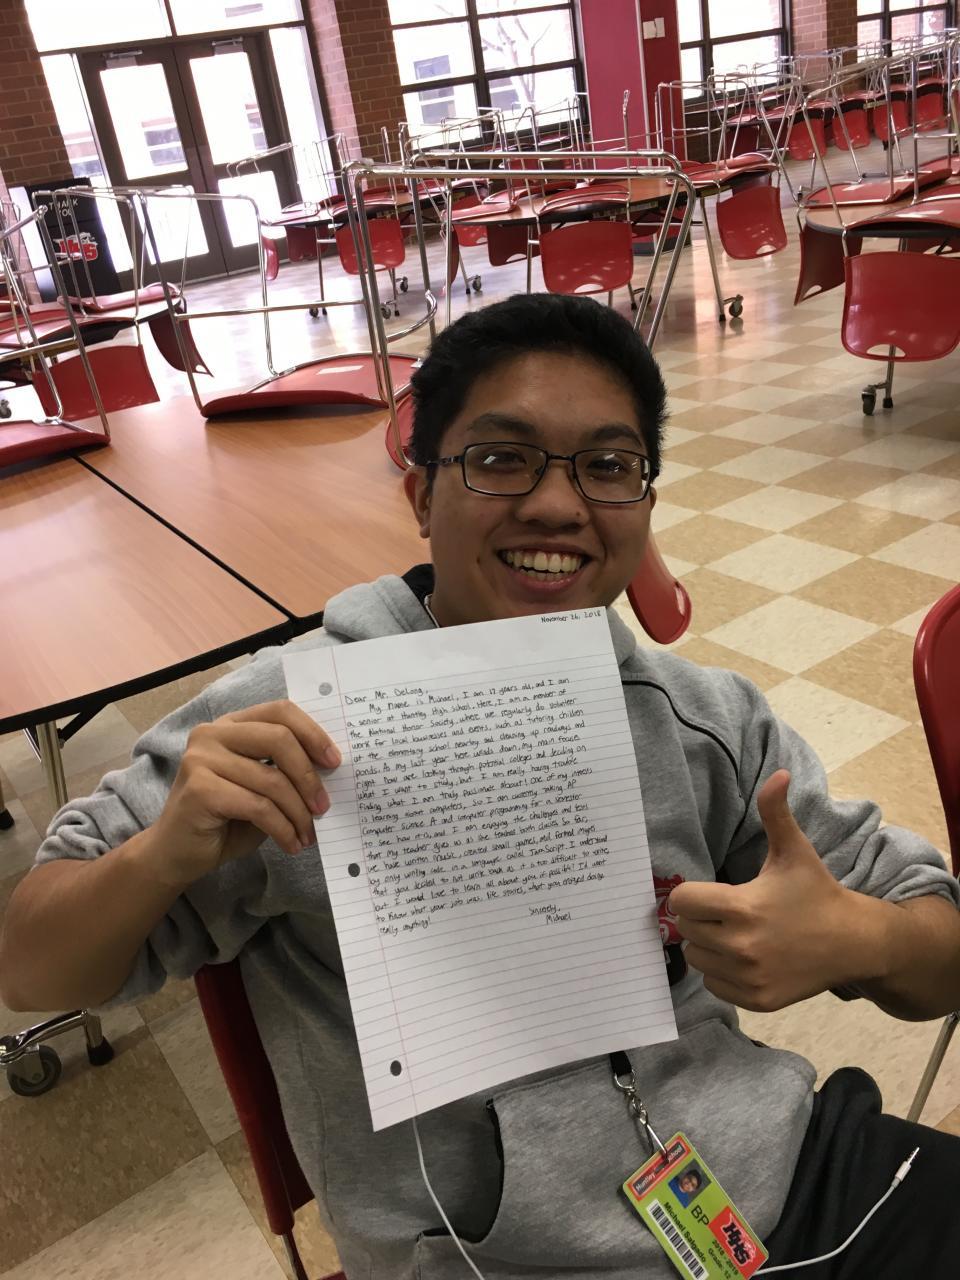 THANK
YOU
November 26, 2018
Dear Mr. DeLong,
My name is Michael, I am 17 years old, and I am
a senior at Huntley High School. Here, I am a member of
the National Honor Society, where we regularly do volunteer
work for local businesses and events, such as tutoring children
at the elementary school nearby and cleaning up roadways and
ponds. As my last year here winds down, my main focus
right now are looking through potential colleges and deciding on
what I want to study, but I am really having trouble
finding what I am truly passionate about! One of my interests
is learning about computers, so I am currently taking AP
Computer Science A and computer programming for a semester
to see how it is, and I am enjoying the challenges and tests
that my teacher gives us as she teaches both classes. So far,
we have written music, created small games, and formed images
by only writing code in a language called JavaScript. I understand
that you decided to not write back as it is too difficult to write
but I would love to learn all about you if possible! I'd want
to know what your job was, life stories, what you enjoyed doing
really anything!
Sincerely,
Michael
Huntley School
BP
Michael Salgado
HHS
2018 - 2019
Grade: 12